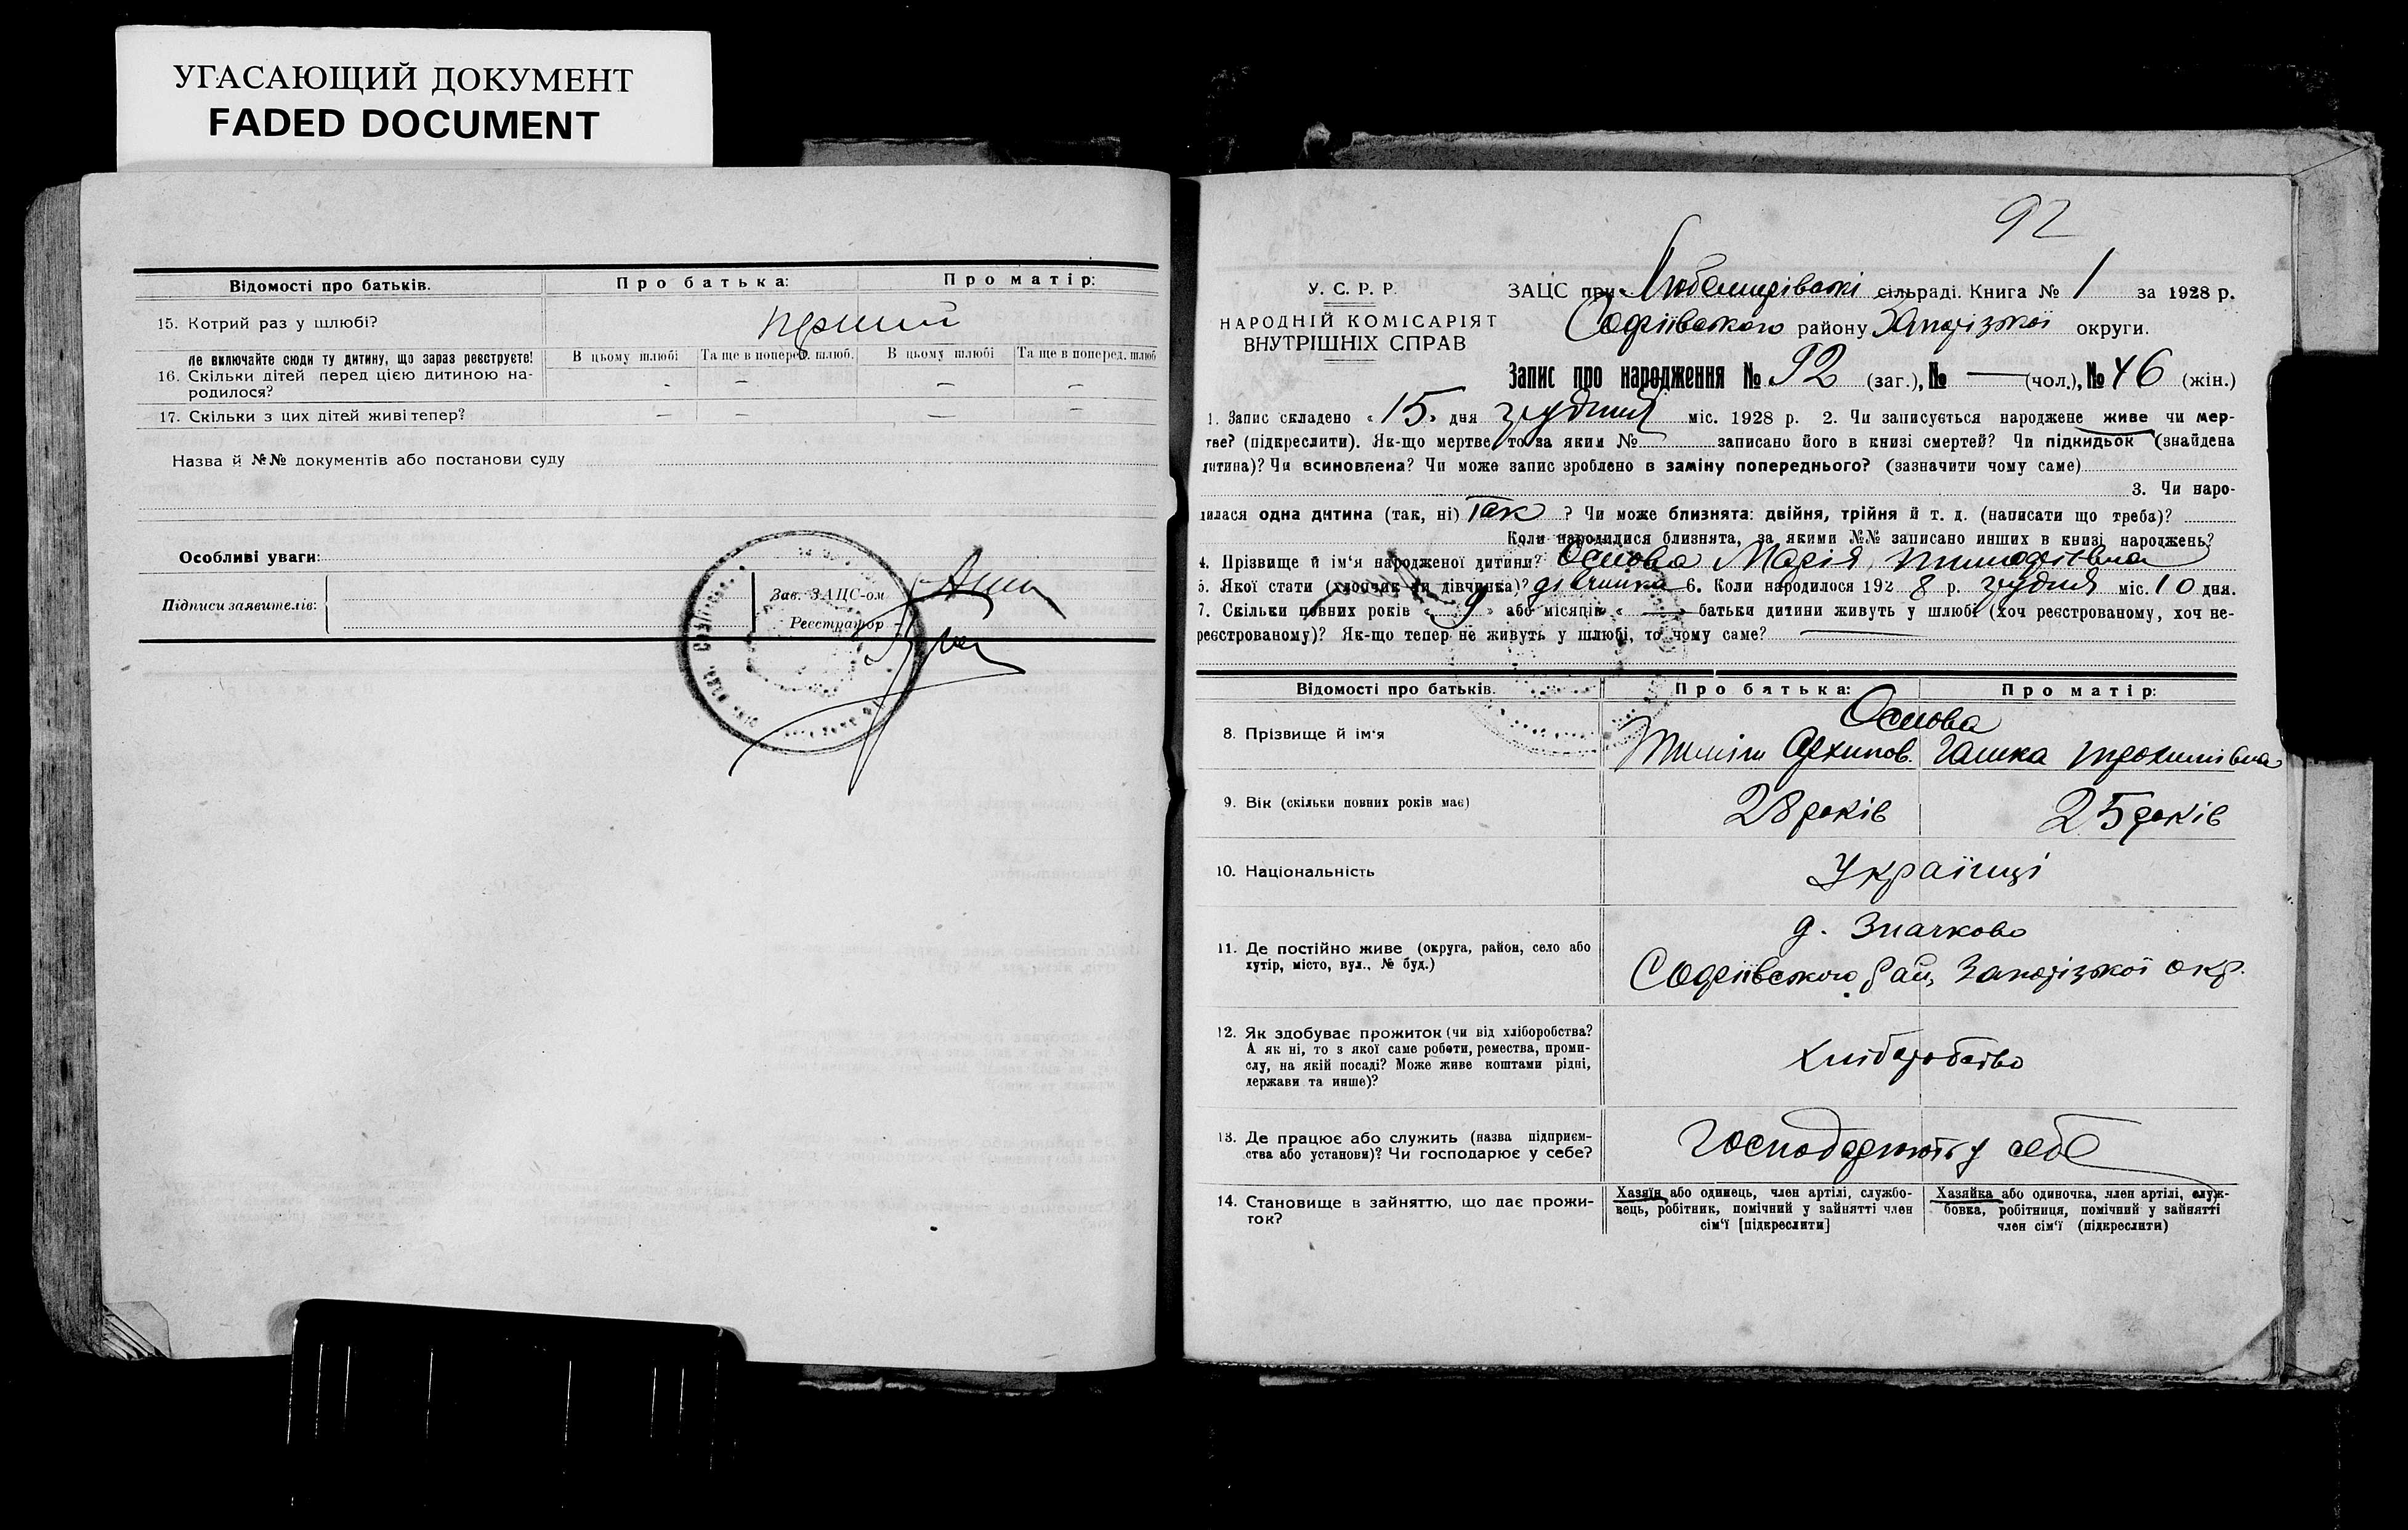 УГАСАЮЩИЙ ДОКУМЕНТ
FADED DOCUMENT
Відомості про батьків. Про батька: Про матір:
15. Котрий раз у шлюбі? перший
Не включайте сюди ту дитину, що зараз реєструєте! В цьому шлюбі Та ще в поперед. шлюб. В цьому шлюбі Та ще в поперед. шлюб
16. Скільки дітей перед цією дитиною на-
родилося? - — — —
17. Скільки з цих дітей живі тепер? — — — —
Назва й №№ документів або постанови суду
Особливі уваги:
Підписи заявителів:
Зав. ЗАЦС-ом
Реєстратор
92
У. С. Р. Р.
НАРОДНІЙ КОМІСАРІЯТ
ВНУТРІШНІХ СПРАВ
ЗАЦС при Любомирівській сільраді. Книга № 1 за 1928 р.
Софіївського району Запорізької округи.
Запис про народження № 92 (заг.), № — (чол.), № 46 (жін.)
1. Запис складено « 15 » дня грудня міс. 1928 р. 2. Чи записується народжене живе чи мер-
тве? (підкреслити). Як-що мертве, то за яким № записано його в книзі смертей? Чи підкидьок (знайдена
дитина)? Чи всиновлена? Чи може запис зроблено в заміну попереднього? (зазначити чому саме)
3. Чи наро-
дилася одна дитина (так, ні) Так ? Чи може близнята: двійня, трійня й т. д. (написати що треба)?
Коли народилися близнята, за якими №№ записано инших в книзі народжень?
4. Прізвище й ім'я народженої дитини? Осиова Марія Тимофіївна
5. Якої стати (хлопчик чи дівчинка)? дівчинка 6. Коли народилося 192 8 р. грудня міс. 10 дня.
7. Скільки повних років « 9 » або місяців « — » батьки дитини живуть у шлюбі (хоч реєстрованому, хоч не-
реєстрованому)? Як-що тепер не живуть у шлюбі, то чому саме? —
Відомості про батьків. Про батька: Про матір:
Осиова
8. Прізвище й ім'я Тиміш Архипов. Гашка Трохимівна
9. Вік (скільки повних років має) 28 років 25 років
10. Національність Українці
11. Де постійно живе (округа, район, село або
хутір, місто, вул., № буд.)
д. Значково
Софіївського рай, Запорізької окр.
12. Як здобуває прожиток (чи від хліборобства?
А як ні, то з якої саме роботи, ремества, проми-
слу, на якій посаді? Може живе коштами рідні,
держави та инше)?
хліборобство
13. Де працює або служить (назва підприєм-
ства або установи)? Чи господарює у себе?
Господарюють у себе
14. Становище в зайняттю, що дає прожи-
ток?
Хазяїн або одинець, член артілі, службо-
вець, робітник, помічний у зайнятті член
сім'ї [підкреслити]
Хазяйка або одиночка, член артілі, служ-
бовка, робітниця, помічний у зайнятті
член сім'ї (підкреслити)